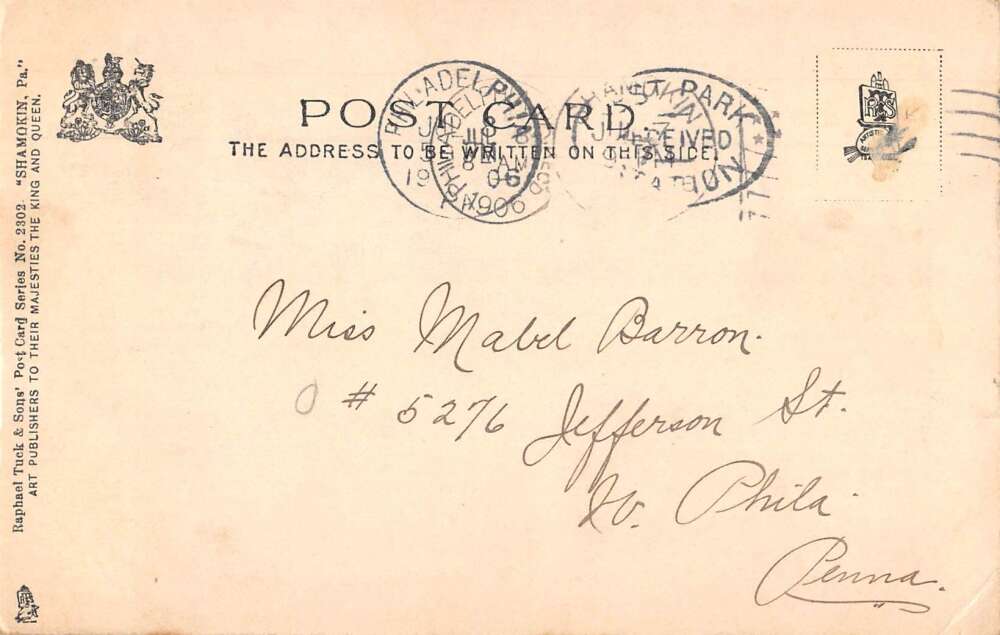 Raphael Tuck & Sons' Post Card Series No. 2302. "SHAMOKIN, Pa."
ART PUBLISHERS TO THEIR MAJESTIES THE KING AND QUEEN.
POST CARD
THE ADDRESS TO BE WRITTEN ON THIS SIDE.
PHILADELPHIA
8 AM
1906
PARK
RECEIVED
STATION
Miss Mabel Barron.
# 5276 Jefferson St.
W. Phila.
Penna.